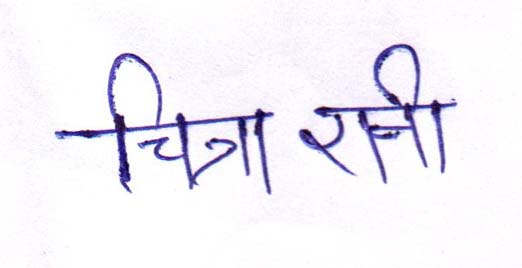 चित्रा रानी